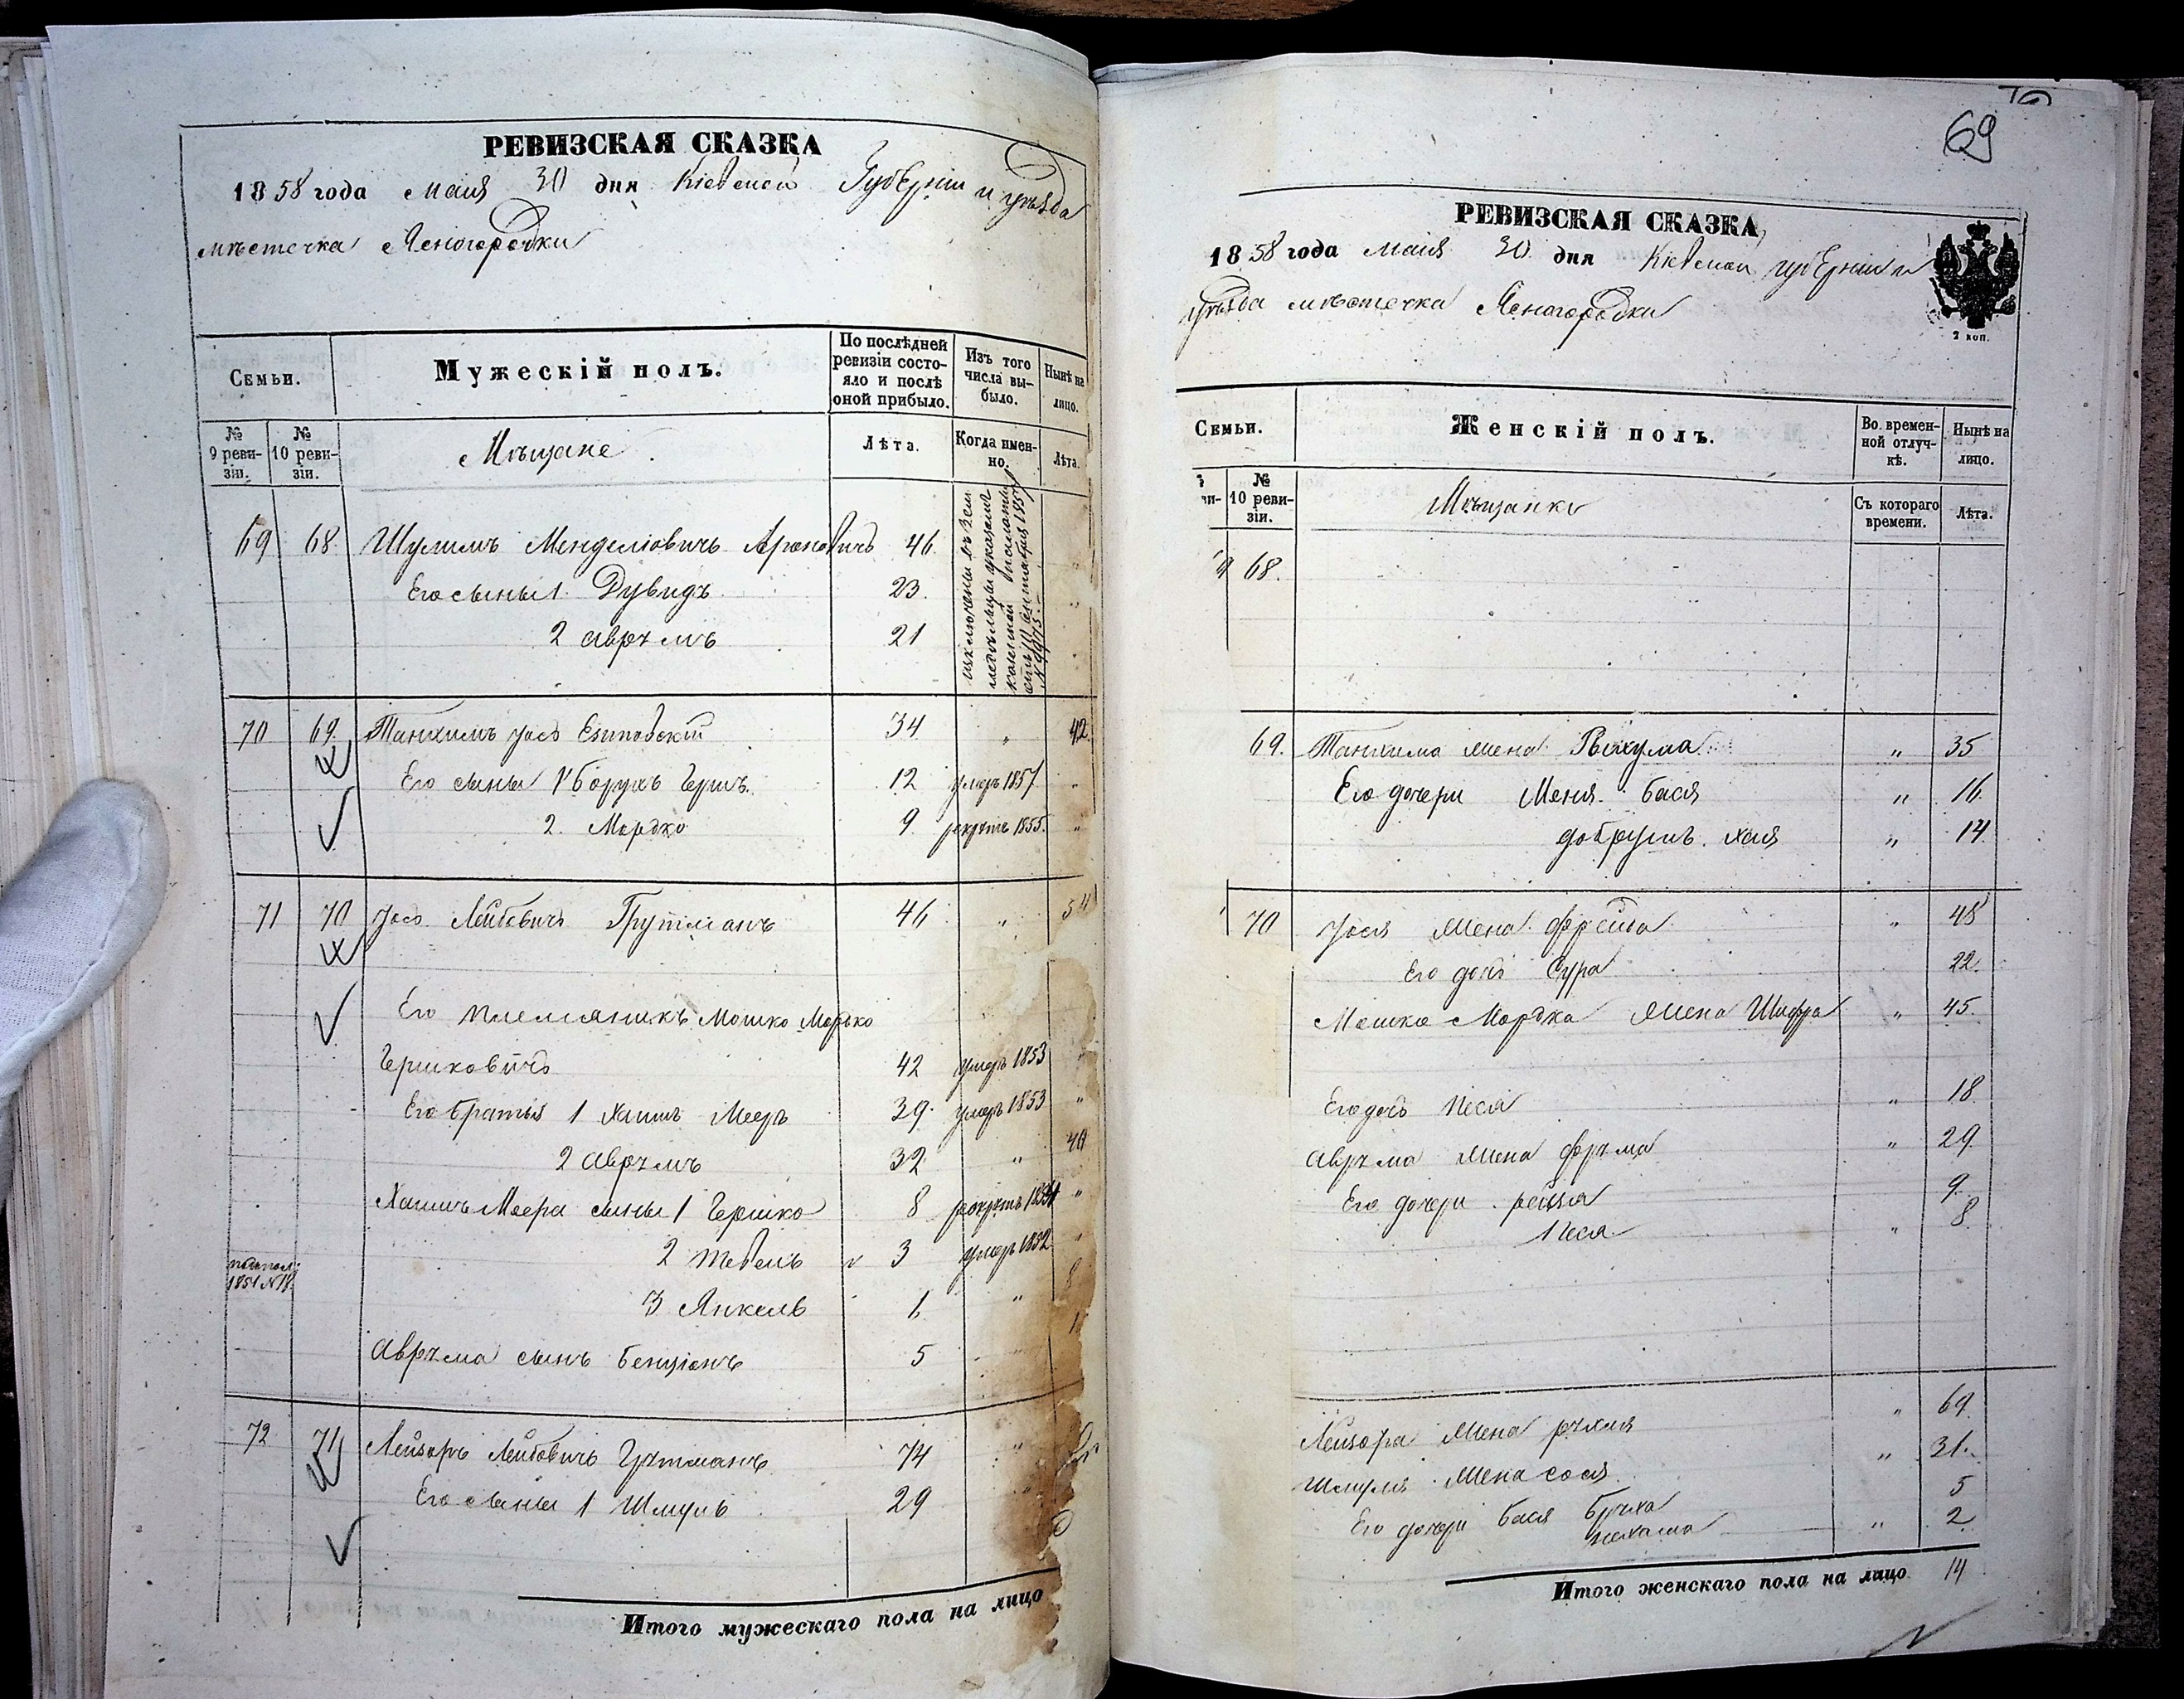 РЕВИЗСКАЯ СКАЗКА
1858 года Маія 30 дня Кіевской Губерніи и уѣзда
мѣстечка Ясногородки
Семьи.
Мужескій полъ.
По послѣдней ревизіи состо-
яло и послѣ оной прибыло.
Изъ того числа вы-
было.
Нынѣ на лицо.
№ 9 реви-
зіи.
№ 10 реви-
зіи.
Мѣщане
Лѣта.
Когда имен-
но.
Лѣта.
69 68. Шулимъ Менделіовичъ Ароновичъ 46
Его сыны 1. Дувидъ 23.
2 Аврумъ 21
исключены въ земледѣльцы указомъ казенной
70 69. Танхимъ Іось Есиповскій 34 " 42.
Его сыны 1 Борухъ Гершъ 12 умеръ 1857. "
2. Мордко 9. рекрутъ 1855. "
71 70 Іось Лейбовичъ Грутманъ 46 " 54
Его племяникъ Мошко Мордко
Гершковичъ 42 умеръ 1853 "
Его братья 1 Хаимъ Мееръ 39. умеръ 1853 "
2 Аврумъ 32 " 40
Хаимъ Меера сыны 1 Гершко 8 рекрутъ 1854 "
2 Тевель 3 умеръ 1852 "
1851 №
3 Янкель 1 " 8
Аврума сынъ Бенціонъ 5
72 71 Лейзоръ Лейбовичъ Гутманъ 74 "
Его сыны 1 Шмуль 29 "
Итого мужескаго пола на лицо
69
РЕВИЗСКАЯ СКАЗКА,
1858 года Маія 30 дня Кіевской губерніи и
уѣзда мѣстечка Ясногородки
2 коп.
Семьи.
Женскій полъ.
Во времен-
ной отлуч-
кѣ.
Нынѣ на лицо.
№ 10 реви-
зіи.
Мѣщанки
Съ котораго времени.
Лѣта.
68.
69. Танхима жена Рухума " 35
Его дочери Меня Бася " 16
Добрушъ Хая " 14
70 Іося жена Фрейда " 48
Его дочь Сура 22.
Мошка Мордка жена Шифра " 45.
Его дочь Песя " 18
Аврума жена Фрума " 29
Его дочери Рейзя 9
Песя " 8.
Лейзора жена Рухля " 69
Шмуля жена Сося " 31.
Его дочери Бася Бруха 5
Нехама " 2
Итого женскаго пола на лицо 14